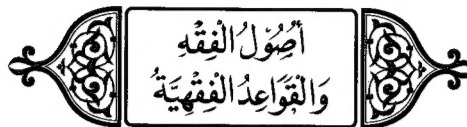 أُصُولُ الْفِقْهِ
وَالْقَوَاعِدُ الْفِقْهِيَّةُ